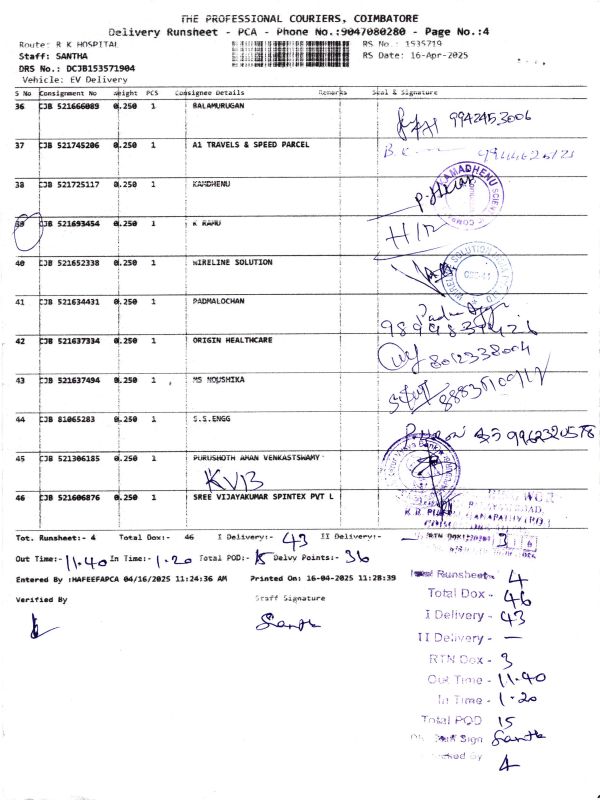 THE PROFESSIONAL COURIERS, COIMBATORE
Delivery Runsheet - PCA - Phone No.:9047080280 - Page No.:4
Route: R K HOSPITAL RS No.: 1535719
Staff: SANTHA RS Date: 16-Apr-2025
DRS No.: DCJB153571904
Vehicle: EV Delivery
S No Consignment No Weight PCS Consignee Details Remarks Seal & Signature
36 CJB 521666089 0.250 1 BALAMURUGAN 9942453006
37 CJB 521745206 0.250 1 A1 TRAVELS & SPEED PARCEL
38 CJB 521725117 0.250 1 KAMDHENU KAMADHENU
39 CJB 521693454 0.250 1 K RAMU
40 CJB 521652338 0.250 1 WIRELINE SOLUTION
41 CJB 521634431 0.250 1 PADMALOCHAN
42 CJB 521637334 0.250 1 ORIGIN HEALTHCARE 8012338004
43 CJB 521637494 0.250 1 MS NOUSHIKA
44 CJB 81065283 0.250 1 S.S.ENGG 9962320578
45 CJB 521306185 0.250 1 PURUSHOTH AMAN VENKASTSWAMY
KVB
46 CJB 521606876 0.250 1 SREE VIJAYAKUMAR SPINTEX PVT L
Tot. Runsheet:- 4 Total Dox:- 46 I Delivery:- 43 II Delivery:- — RTN Dox: 3
Out Time:- 11.40 In Time:- 1.20 Total POD:- 15 Delvy Points:- 36
Entered By :HAFEEFAPCA 04/16/2025 11:24:36 AM Printed On: 16-04-2025 11:28:39
Verified By Staff Signature
Santha
Runsheet - 4
Total Dox - 46
I Delivery - 43
II Delivery - —
RTN Dox - 3
Out Time - 11.40
In Time - 1.20
Total POD 15
Sign Santha